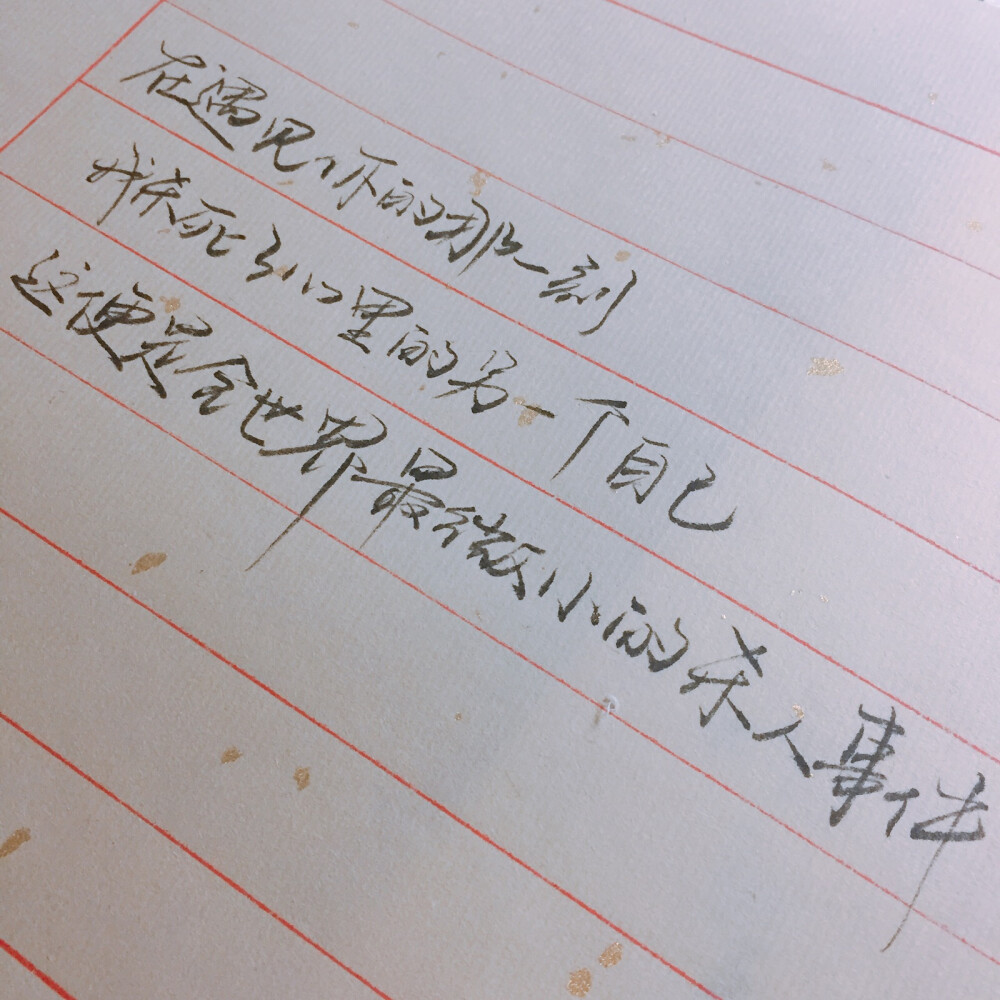 在遇见你的那一刻
我杀死了心里的另一个自己
这便是全世界最微小的杀人事件